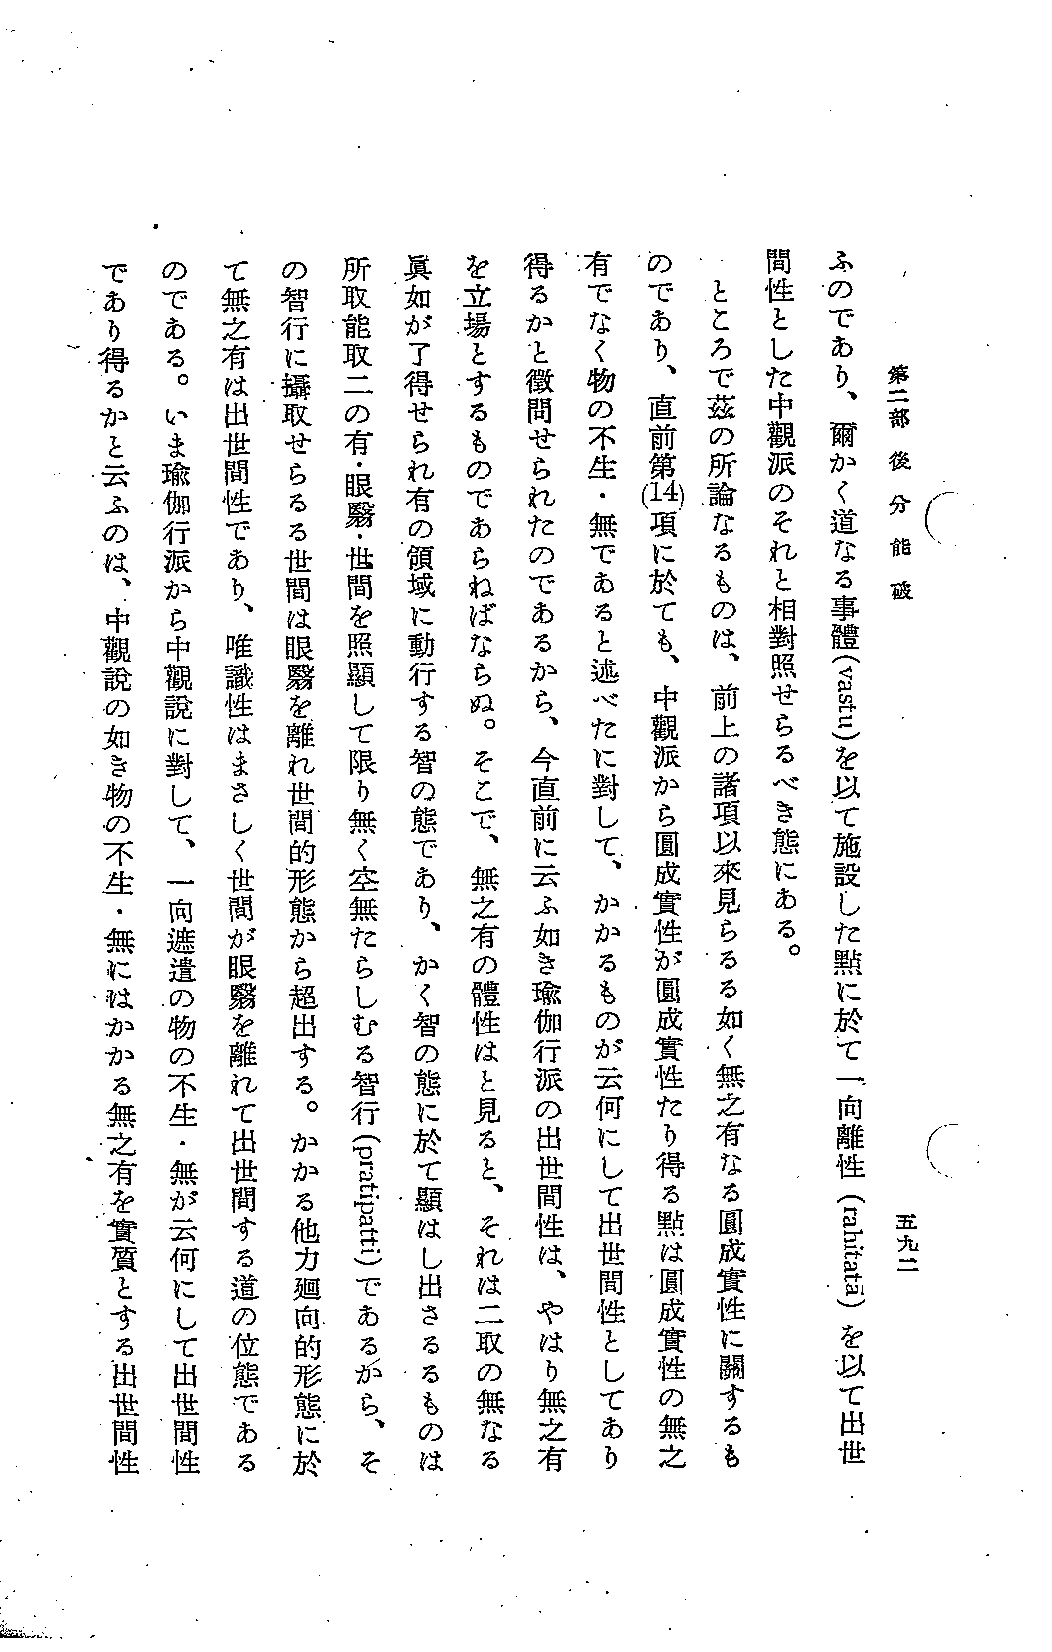 第二部 後分能破
五九二
ふのであり、爾かく道なる事體(vastu)を以て施設した點に於て一向離性(rahitatā)を以て出世
間性とした中觀派のそれと相對照せらるべき態にある。
ところで茲の所論なるものは、前上の諸項以來見らるる如く無之有なる圓成實性に關するも
のであり、直前第(14)項に於ても、中觀派から圓成實性が圓成實性たり得る點は圓成實性の無之
有でなく物の不生・無であると述べたに對して、かかるものが云何にして出世間性としてあり
得るかと徵問せられたのであるから、今直前に云ふ如き瑜伽行派の出世間性は、やはり無之有
を立場とするものであらねばならぬ。そこで、無之有の體性はと見ると、それは二取の無なる
眞如が了得せられ有の領域に動行する智の態であり、かく智の態に於て顯はし出さるるものは
所取能取二の有・眼翳・世間を照顯して限り無く空無たらしむる智行(pratipatti)であるがら、そ
の智行に攝取せらるる世間は眼翳を離れ世間的形態から超出する。かかる他力廻向的形態に於
て無之有は出世間性であり、唯識性はまさしく世間が眼翳を離れて出世間する道の位態である
のである。いま瑜伽行派から中觀說に對して、一向遮遣の物の不生・無が云何にして出世間性
であり得るかと云ふのは、中觀說の如き物の不生・無にはかかる無之有を實質とする出世間性